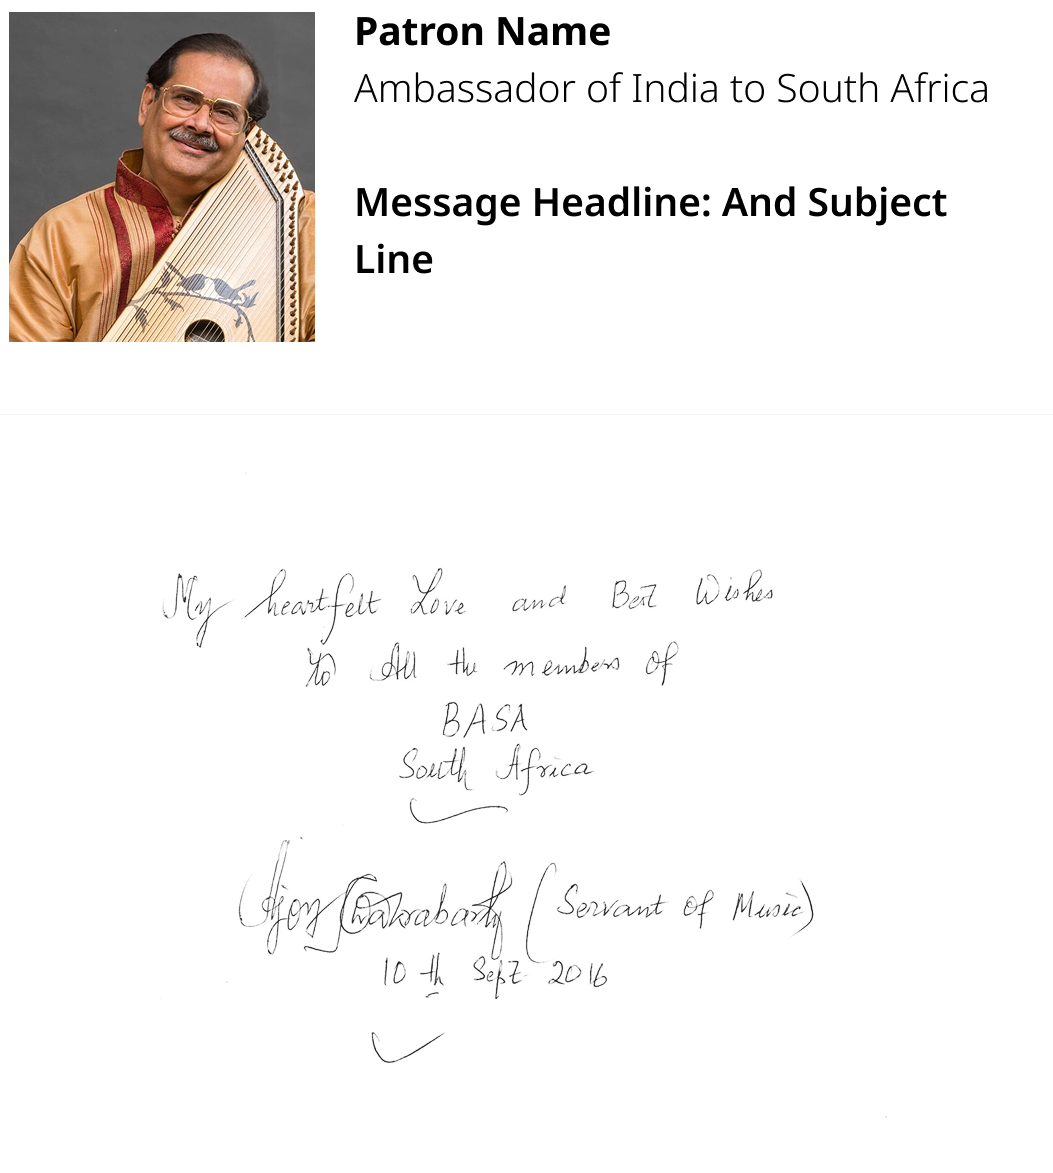 Patron Name
Ambassador of India to South Africa
Message Headline: And Subject
Line
My heartfelt Love and Best Wishes
To All the members of
BASA
South Africa
Ajoy Chakrabarty (Servant of Music)
10 th Sept 2016